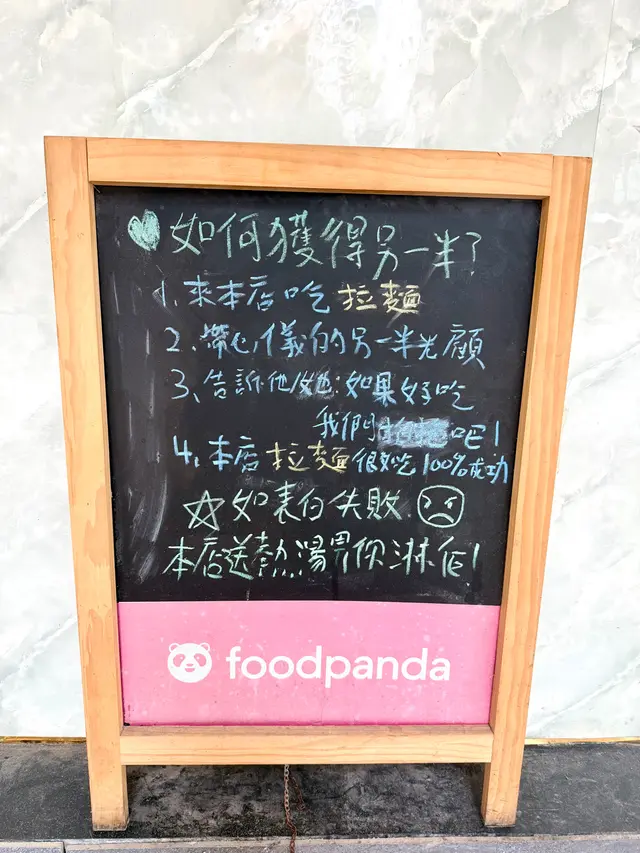 如何獲得另一半?
1.來本店吃拉麵
2.帶心儀的另一半光顧
3、告訴他/她:如果好吃
我們吧!
4、本店拉麵很好吃100%成功
☆如表白失敗
本店送熱湯畀你淋佢!
foodpanda